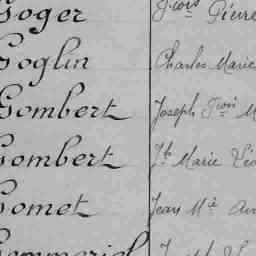 Goger Fçois Pierre
Goglin Charles Marie
Gombert Joseph Fçois M
Gombert Jh Marie Léo
Gomet Jean Mie